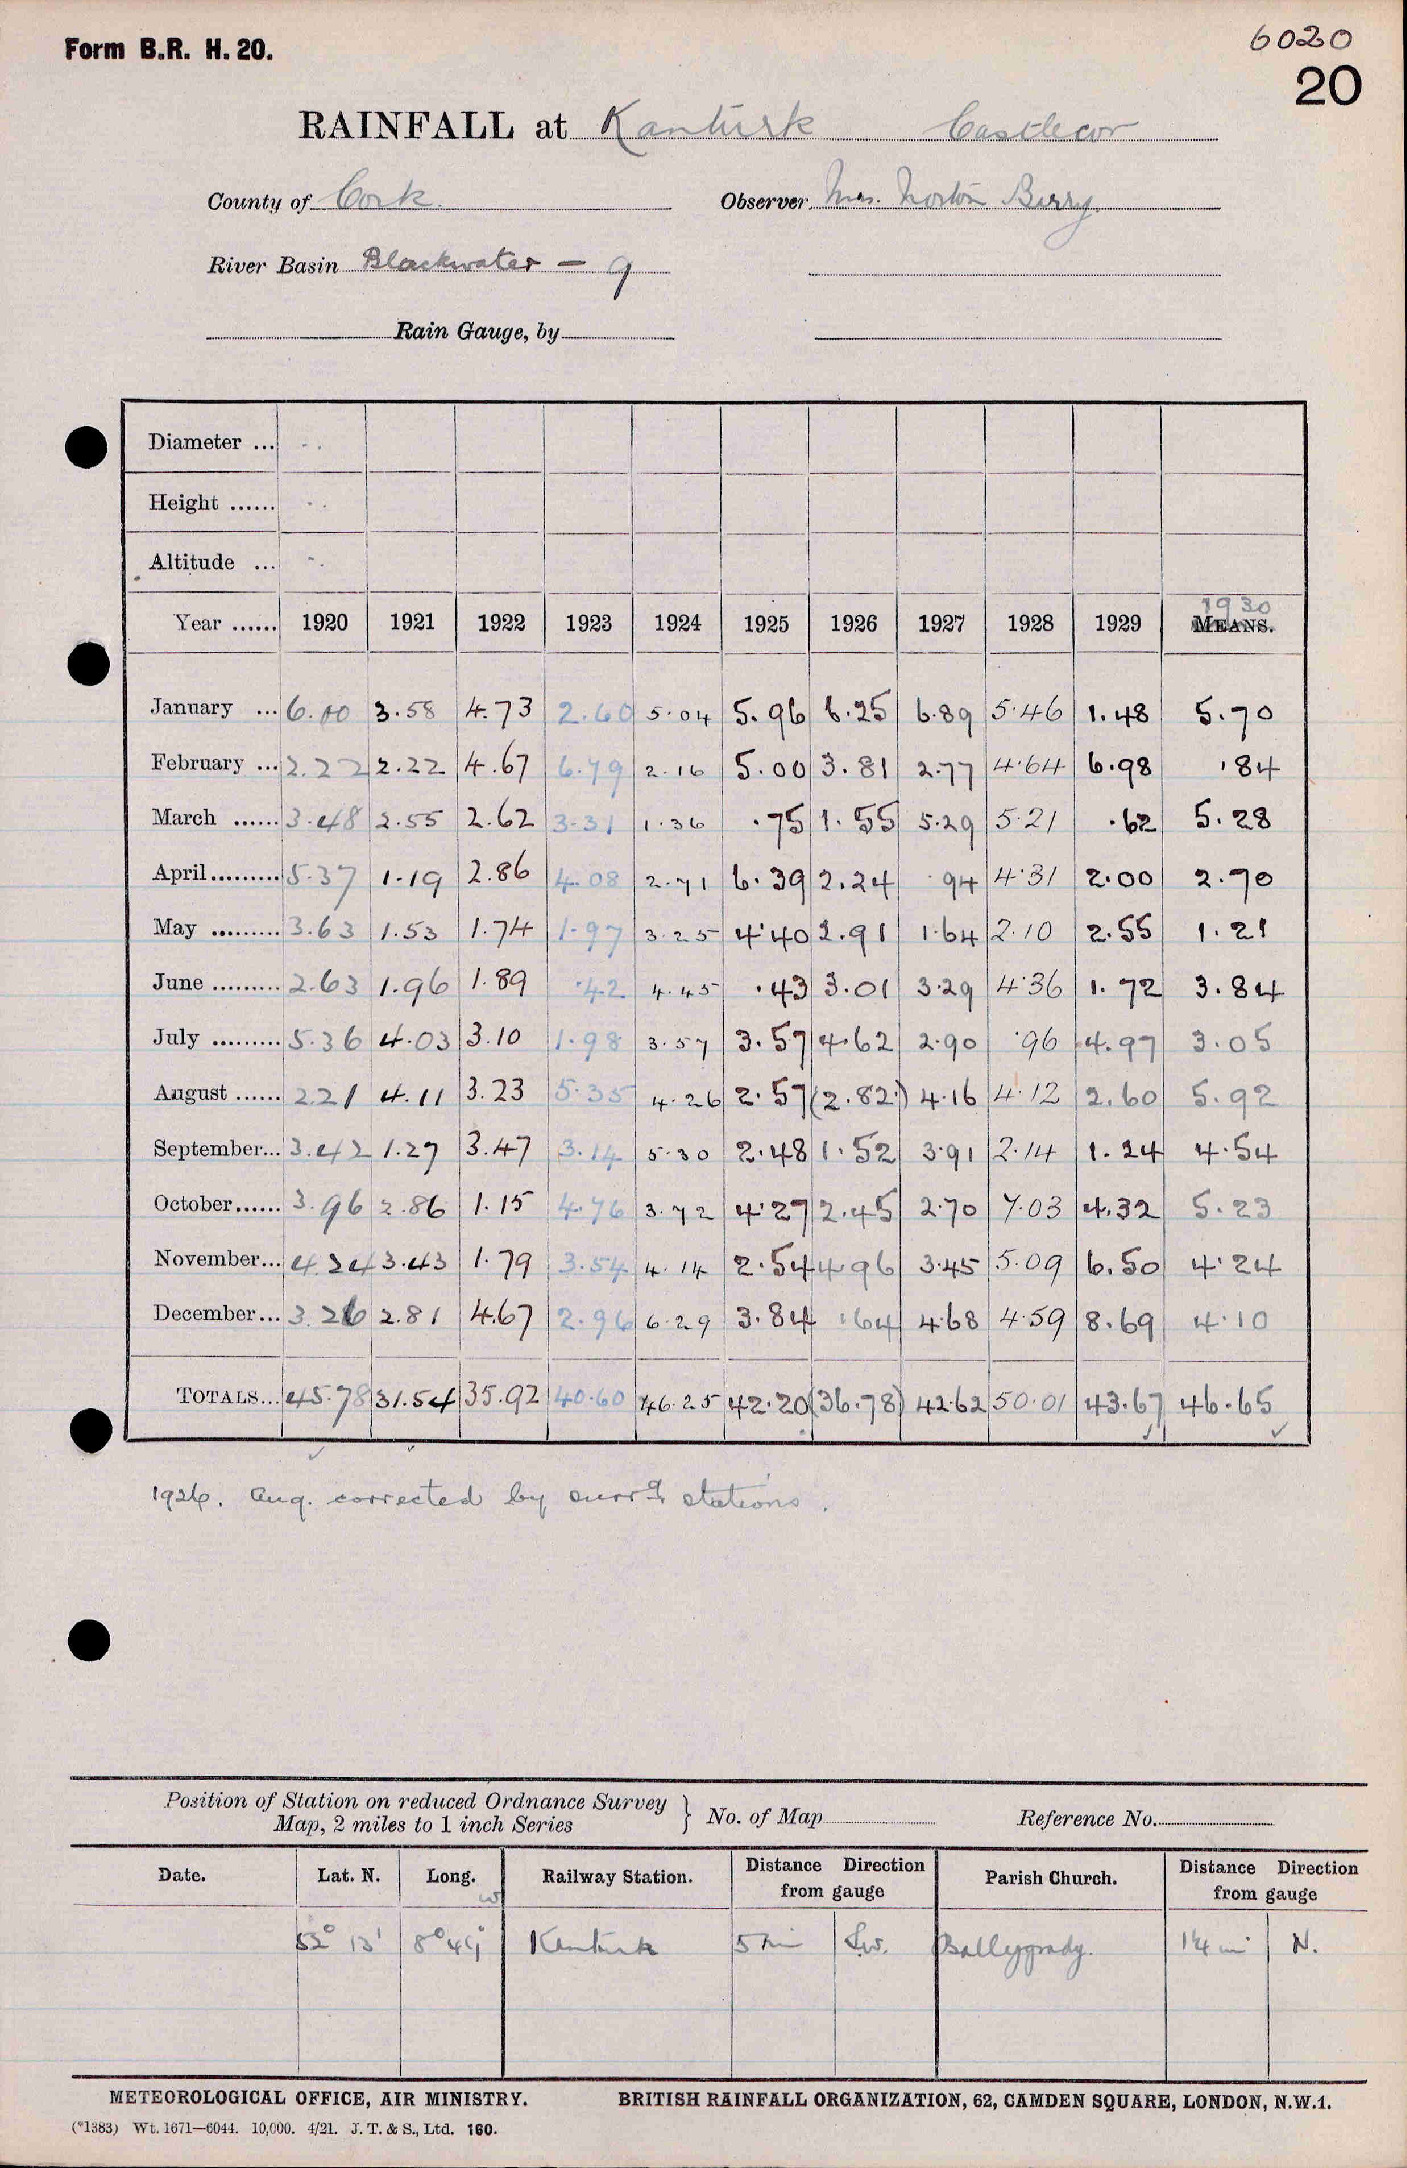 Form B.R. H. 20.
6020
20
RAINFALL at Kanturk Castlecor
County of Cork. Observer Mrs. Norton Barry.
River Basin Blackwater — 9
Rain Gauge, by
Diameter ...
Height ......
Altitude ...
1930
Year ...... 1920 1921 1922 1923 1924 1925 1926 1927 1928 1929 MEANS.
January ... 6.00 3.58 4.73 2.60 5.04 5.96 6.25 6.89 5.46 1.48 5.70
February ... 2.22 2.22 4.67 6.79 2.16 5.00 3.81 2.77 4.64 6.98 .84
March ...... 3.48 2.55 2.62 3.31 1.36 .75 1.55 5.29 5.21 .62 5.28
April......... 5.37 1.19 2.86 4.08 2.71 6.39 2.24 .94 4.31 2.00 2.70
May ......... 3.63 1.53 1.74 1.97 3.25 4.40 2.91 1.64 2.10 2.55 1.21
June ......... 2.63 1.96 1.89 .42 4.45 .43 3.01 3.29 4.36 1.72 3.84
July ......... 5.36 4.03 3.10 1.98 3.57 3.57 4.62 2.90 .96 4.97 3.05
August ...... 2.21 4.11 3.23 5.35 4.26 2.57 (2.82) 4.16 4.12 2.60 5.92
September... 3.42 1.27 3.47 3.14 5.30 2.48 1.52 3.91 2.14 1.24 4.54
October...... 3.96 2.86 1.15 4.76 3.72 4.27 2.45 2.70 7.03 4.32 5.23
November... 4.24 3.43 1.79 3.54 4.14 2.54 4.96 3.45 5.09 6.50 4.24
December... 3.26 2.81 4.67 2.96 6.29 3.84 .64 4.68 4.59 8.69 4.10
TOTALS... 45.78 31.54 35.92 40.60 46.25 42.20 (36.78) 42.62 50.01 43.67 46.65
1926. Aug. corrected by surrg stations.
Position of Station on reduced Ordnance Survey
Map, 2 miles to 1 inch Series } No. of Map Reference No.
Date. Lat. N. Long. W Railway Station. Distance Direction from gauge Parish Church. Distance Direction from gauge
52° 13' 8° 49' Kanturk 5 mi S.W. Ballygrady. 1¼ mi N.
METEOROLOGICAL OFFICE, AIR MINISTRY. BRITISH RAINFALL ORGANIZATION, 62, CAMDEN SQUARE, LONDON, N.W.1.
(*1383) Wt. 1671—6044. 10,000. 4/21. J. T. & S., Ltd. 160.